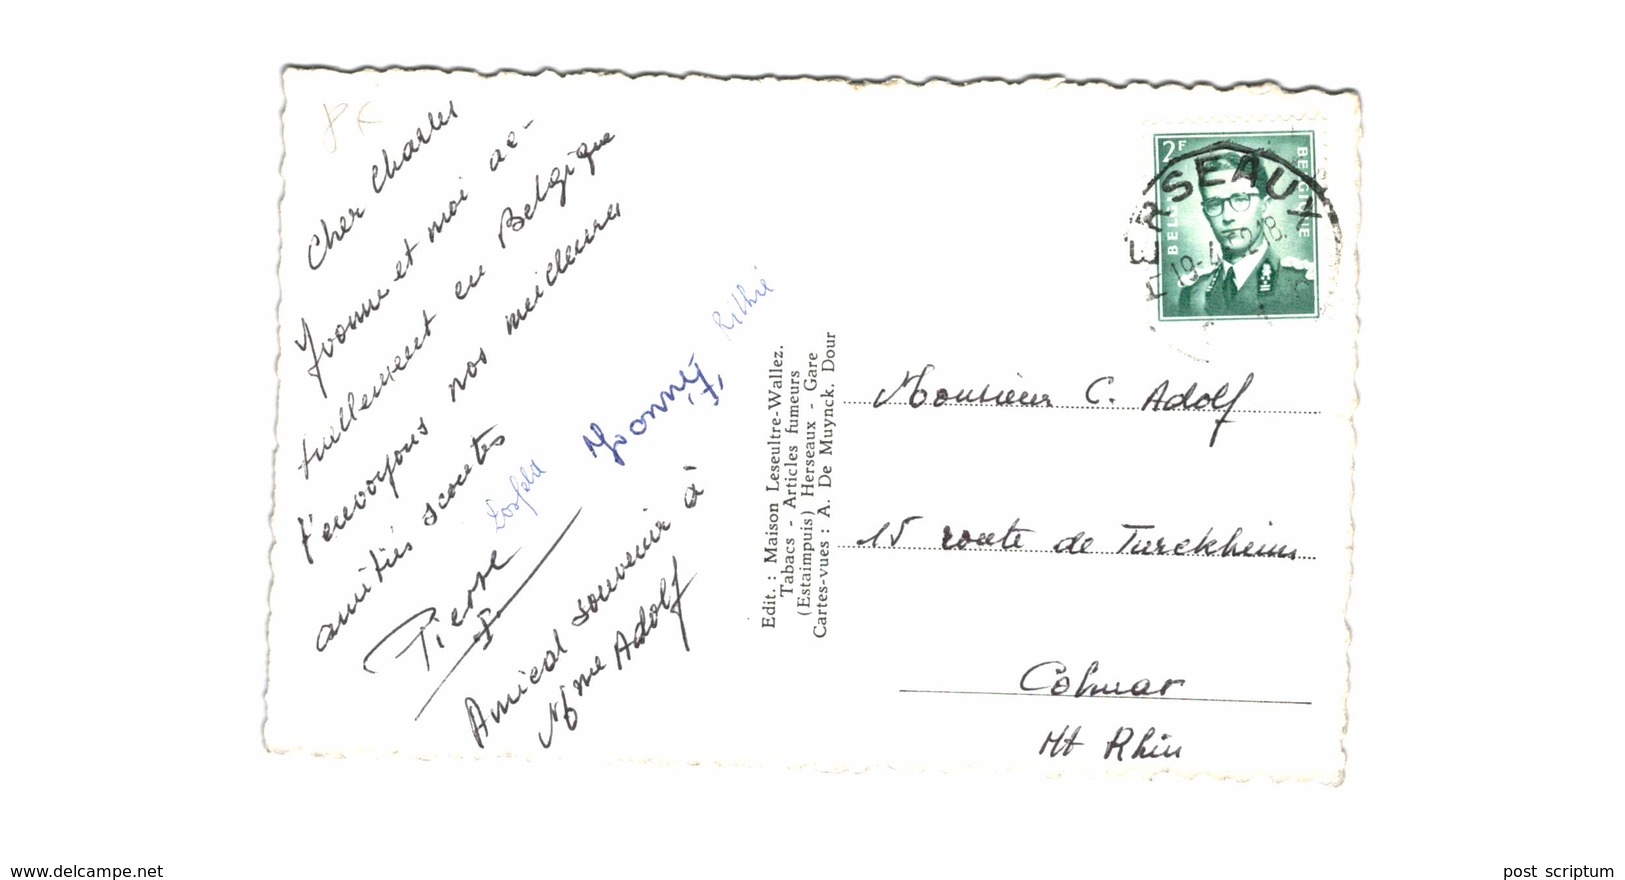 8€
Cher Charles
Yvonne et moi ac-
tuellement en Belgique
t'envoyons nos meilleures
amitiés scoutes
Pierre
Yvonne
Amical souvenir à
Mme Adolf
Edit. : Maison Leseultre-Wallez.
Tabacs - Articles fumeurs
(Estaimpuis) Herseaux - Gare
Cartes-vues : A. De Muynck. Dour
2F
BELGIQUE
ERSEAUX
19-4
Monsieur C. Adolf
15 route de Turckheim
Colmar
Ht Rhin
delcampe.net
post scriptum